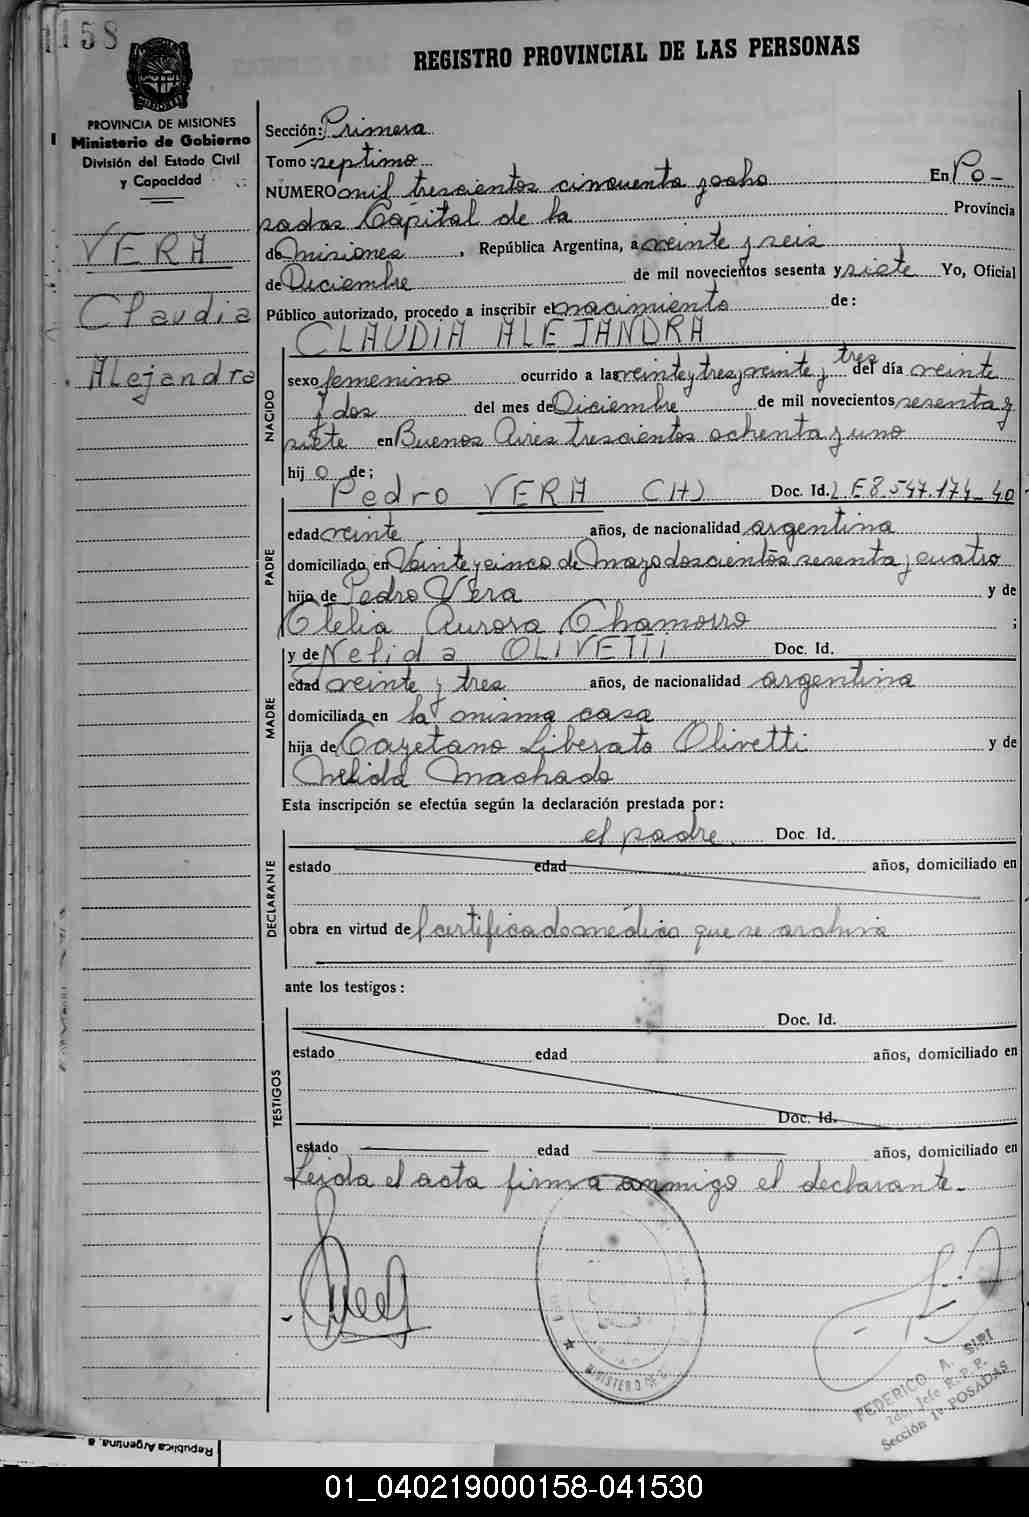 158
REGISTRO PROVINCIAL DE LAS PERSONAS
PROVINCIA DE MISIONES
Ministerio de Gobierno
División del Estado Civil
y Capacidad
VERA
Claudia
Alejandra
Sección: Primera
Tomo: septimo
NUMERO mil trescientos cincuenta y ocho En Po-
sadas Capital de la Provincia
de Misiones, República Argentina, a veinte y seis
de Diciembre de mil novecientos sesenta y siete Yo, Oficial
Público autorizado, procedo a inscribir el nacimiento de:
CLAUDIA ALEJANDRA
NACIDO
sexo femenino ocurrido a las veinte y tres y veinte y tres del día veinte
y dos del mes de Diciembre de mil novecientos sesenta y
siete en Buenos Aires trescientos ochenta y uno
hij o de;
Pedro VERA (H) Doc. Id. L E 8.547.174-40
PADRE
edad veinte años, de nacionalidad argentina
domiciliado en Veinte y cinco de Mayo doscientos sesenta y cuatro
hijo de Pedro Vera y de
Clelia Aurora Chamorro ;
y de Nelida OLIVETTI Doc. Id.
MADRE
edad veinte y tres años, de nacionalidad argentina
domiciliada en la misma casa
hija de Cayetano Liberato Olivetti y de
Nelida Machado
Esta inscripción se efectúa según la declaración prestada por:
el padre. Doc. Id.
DECLARANTE
estado edad años, domiciliado en
obra en virtud de l certificado médico que se archiva
ante los testigos:
Doc. Id.
TESTIGOS
estado edad años, domiciliado en
Doc. Id.
estado edad años, domiciliado en
Leida el acta firma conmigo el declarante.
MINISTERIO DE
FEDERICO A. SIRI
2do. Jefe R. P. P.
Sección 1ª POSADAS
República Argentina, a
01_040219000158-041530